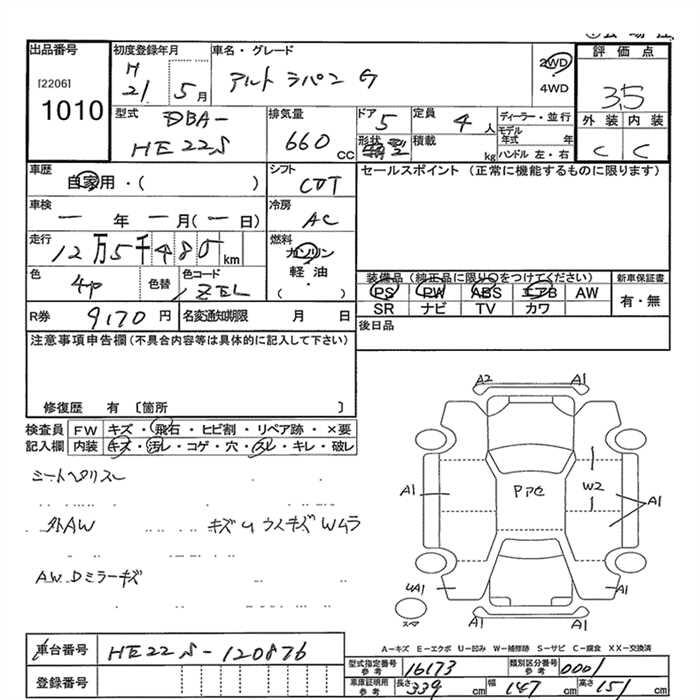 出品番号
[2206]
1010
初度登録年月
H
21 5月
車名・グレード
アルト ラパン G
2WD
4WD
評価点
3.5
外装 内装
C C
型式
DBA-
HE22S
排気量
660 CC
ドア
5
形状
定員
4人
積載
kg
ディーラー・並行
モデル
年式 年
ハンドル 左・右
車歴
自家用・( )
シフト
CVT
セールスポイント (正常に機能するものに限ります)
車検
一 年 一 月(一 日)
冷房
AC
走行
12万5千485km
燃料
ガソリン
軽油
・
( )
色
色替
色コード
ZEL
装備品(純正品に限り○をつけてください)
PS PW ABS エアB AW
SR ナビ TV カワ
新車保証書
有・無
R券 9170円
名変通知期限 月 日
後日品
注意事項申告欄(不具合内容等は具体的に記入して下さい)
修復歴 有 〔箇所 〕
検査員
記入欄
FW キズ・飛石・ヒビ割・リペア跡・×要
内装 キズ・汚レ・コゲ・穴・スレ・キレ・破レ
シートヘタリスレ
外AW キズU ウスキズ Wムラ
A.W.Dミラーキズ
A2 A1
A1 W2 A1
4A1 A1
スペア
A1 A1
A-キズ E-エクボ U-凹み W-補修跡 S-サビ C-腐食 XX-交換済
車台番号 HE22S-120876
登録番号
型式指定番号
参考
16173
類別区分番号
参考
0001
車庫証明用
参考
長さ 339 cm
幅 147 cm
高さ 151 cm